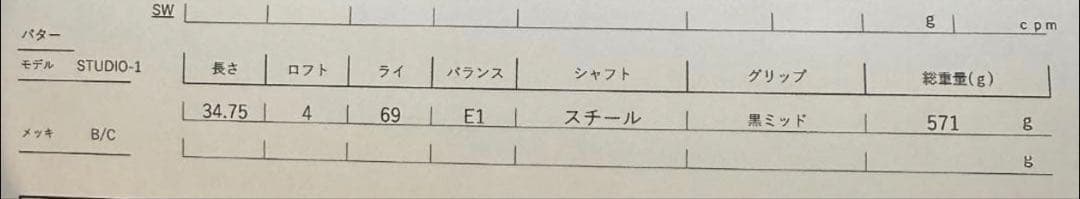 SW g cpm
パター
モデル STUDIO-1 長さ ロフト ライ バランス シャフト グリップ 総重量(g)
34.75 4 69 E1 スチール 黒ミッド 571 g
メッキ B/C g